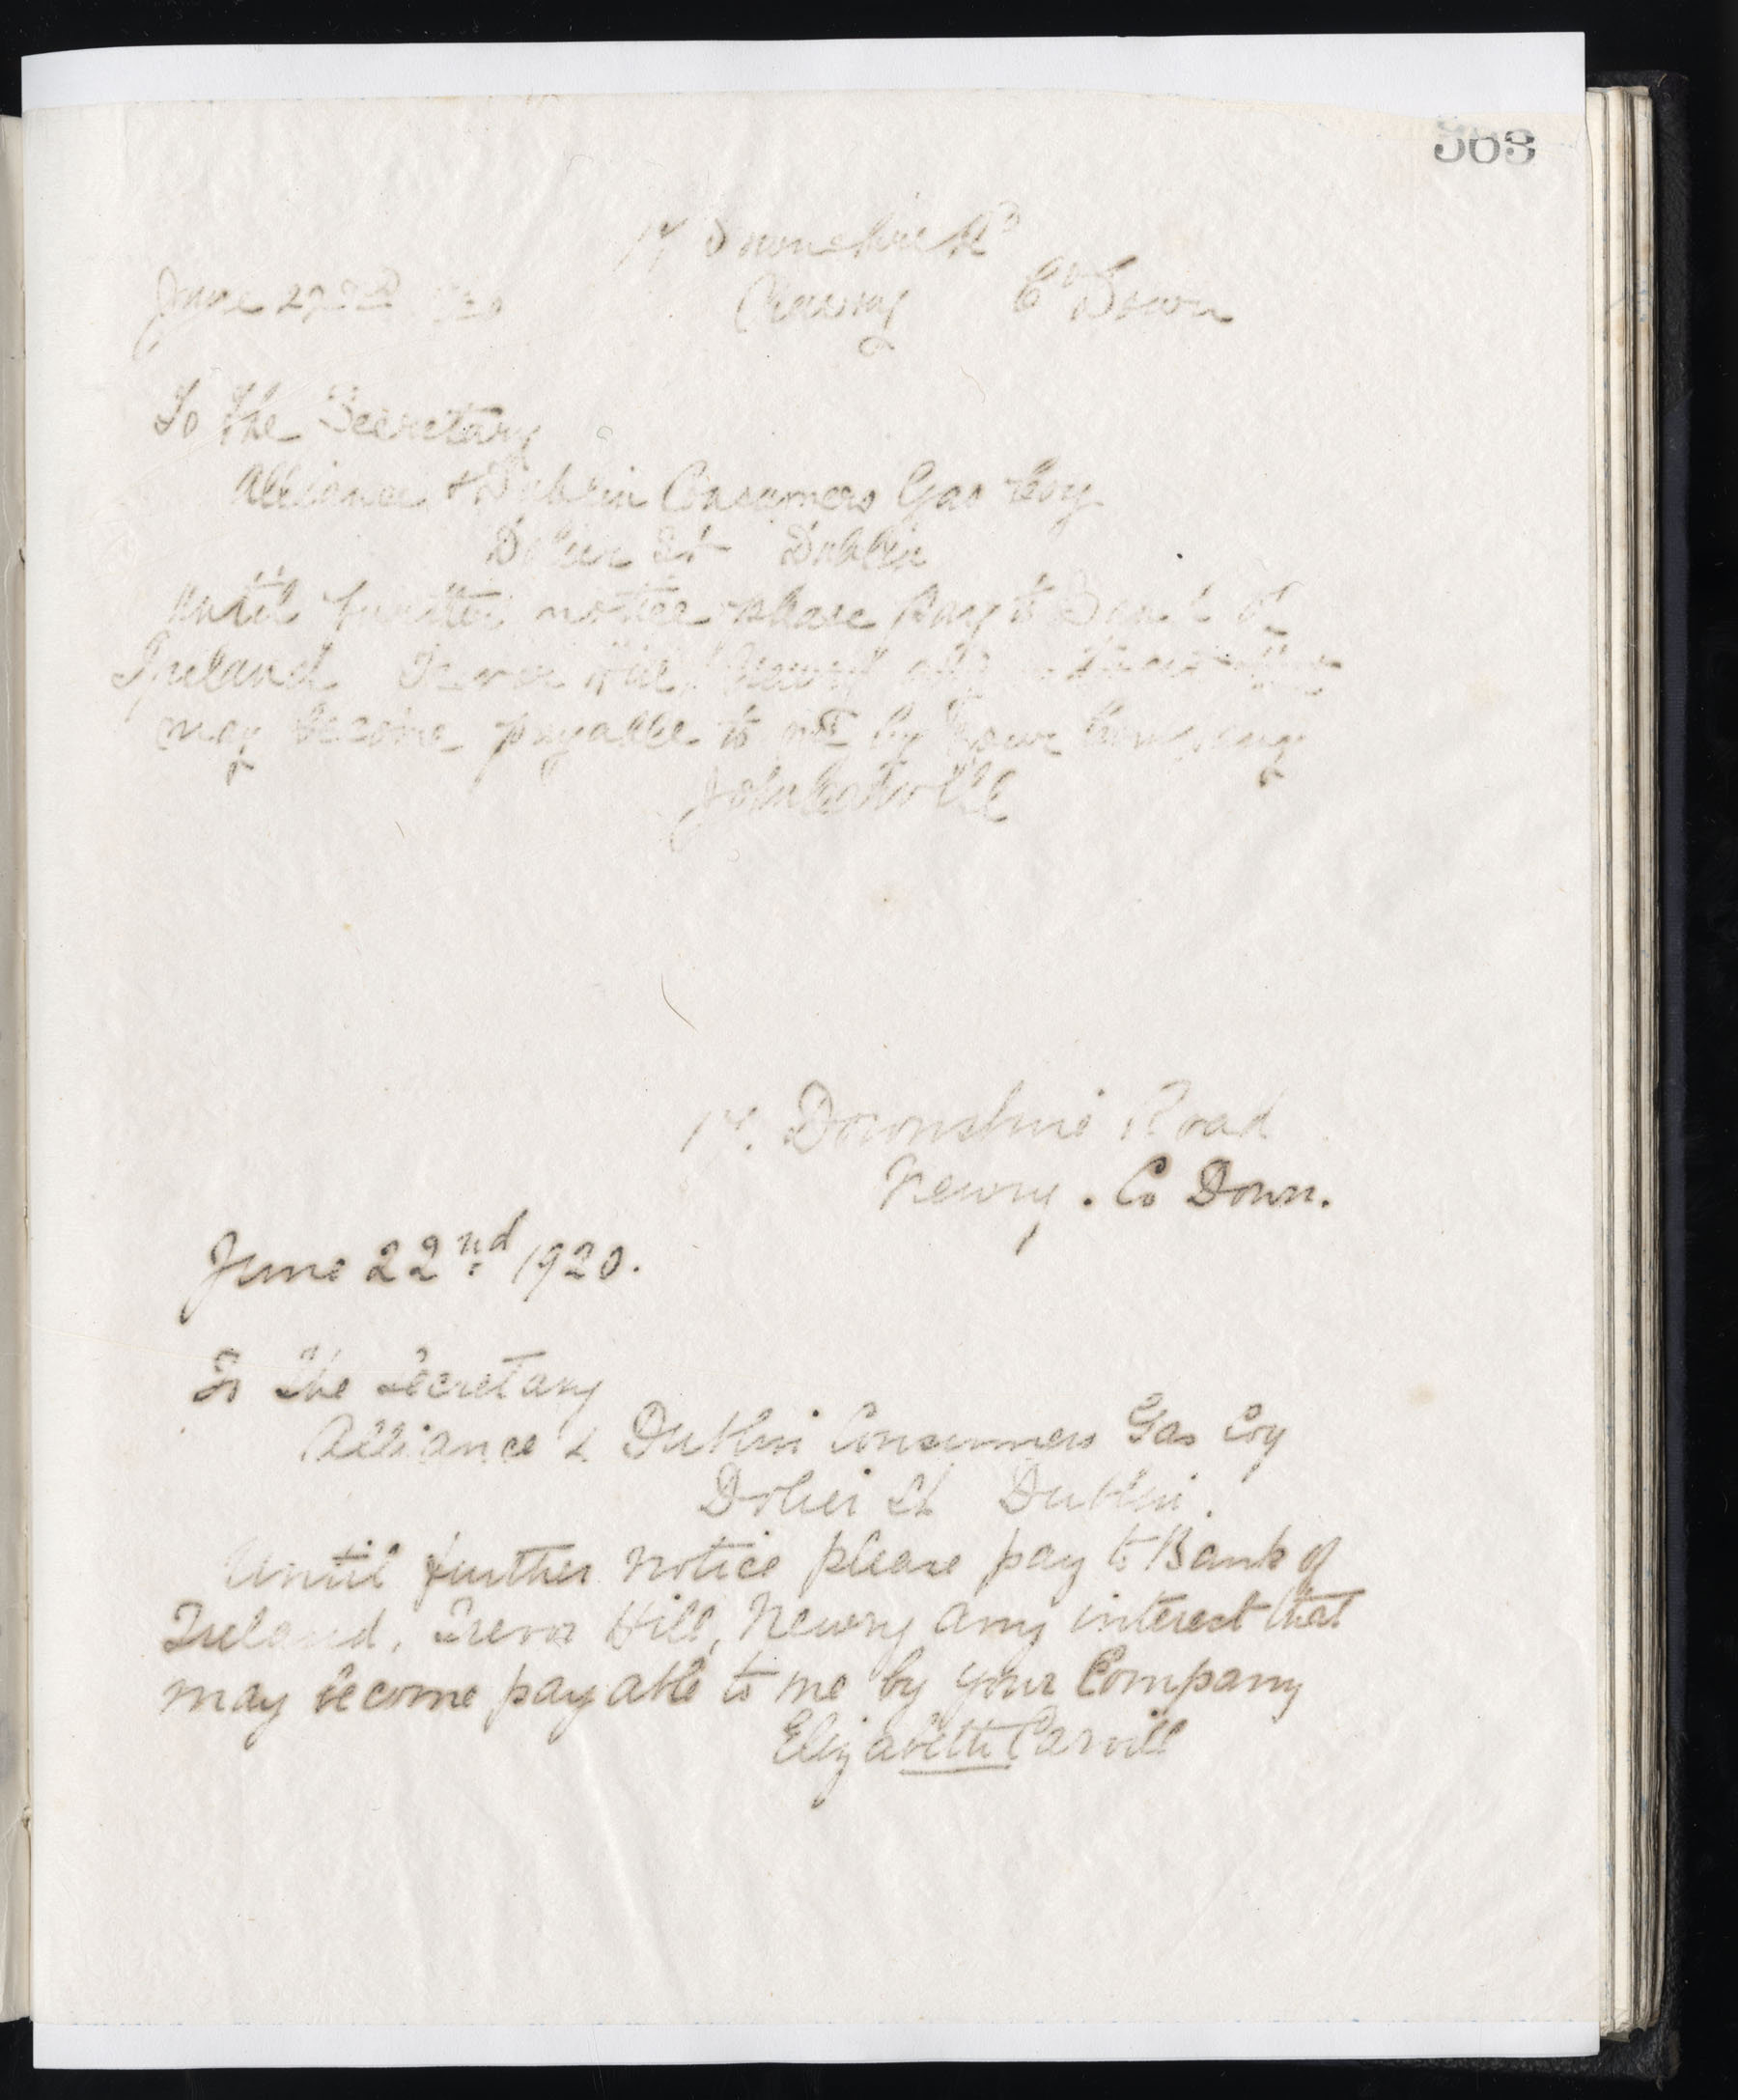 563
17 Downshire Rd
June 22nd 1920 Newry Co Down
To The Secretary
Alliance & Dublin Consumers Gas Coy
Dolier St Dublin
Until further notice please pay to Bank of
Ireland Trevor Hill, Newry any
may become payable to me by your Company
John Carvill
17. Downshire Road
Newry. Co Down.
June 22nd 1920.
To The Secretary
Alliance & Dublin Consumers Gas Coy
Dolier St Dublin.
Until further notice please pay to Bank of
Ireland, Trevor Hill, Newry any interest that
may become payable to me by your Company
Elizabeth Carvill